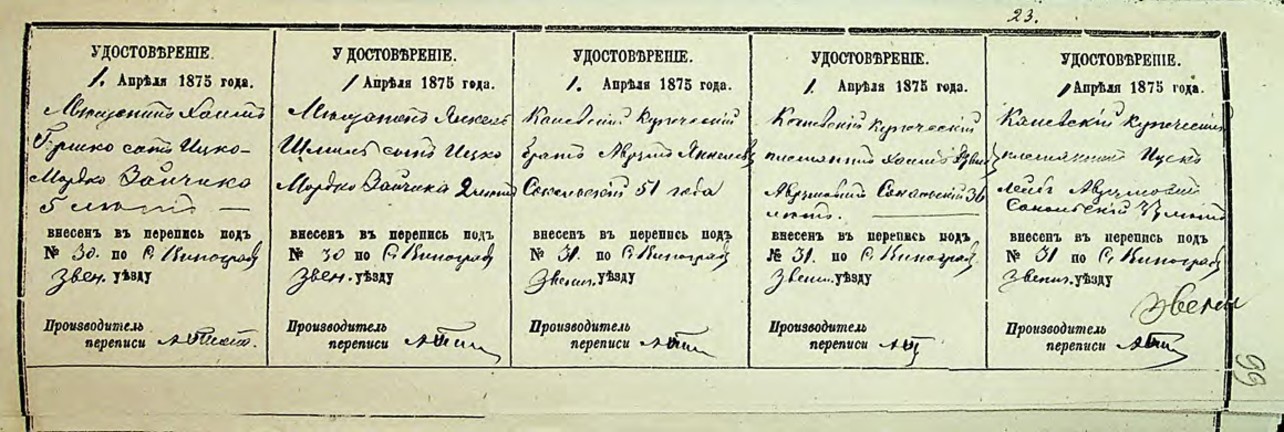 23.
УДОСТОВѢРЕНІЕ.
1. Апрѣля 1875 года.
Мѣщанинъ Хаимъ
Гершко сынъ Ицко-
Мордко Зайчика
5 лѣтъ —
внесенъ въ перепись подъ
№ 30. по С. Виноградъ
Звен. уѣзду
Производитель
переписи
УДОСТОВѢРЕНІЕ.
1 Апрѣля 1875 года.
Мѣщанинъ Янкель
Шмиль сынъ Ицко
Мордко Зайчика 2 лѣтъ
внесенъ въ перепись подъ
№ 30 по С. Виноградъ
Звен. уѣзду
Производитель
переписи
УДОСТОВѢРЕНІЕ.
1. Апрѣля 1875 года.
Каневскій Купеческій
братъ Аврумъ Янкелев
Сокольскій 51 года
внесенъ въ перепись подъ
№ 31. по С. Виноградъ
Звениг. уѣзду
Производитель
переписи
УДОСТОВѢРЕНІЕ.
1. Апрѣля 1875 года.
Каневскій Купеческій
племянникъ Хаимъ
Аврумовичъ Сокольскій 36
лѣтъ.
внесенъ въ перепись подъ
№ 31. по С. Виноградъ.
Звениг. уѣзду
Производитель
переписи
УДОСТОВѢРЕНІЕ.
1 Апрѣля 1875 года.
Каневскій Купеческій
племянникъ Ицко
Лейбъ Аврумовичъ
Сокольскій лѣтъ
внесенъ въ перепись подъ
№ 31 по С. Виноградъ
Звениг. уѣзду
Звени
Производитель
переписи
99